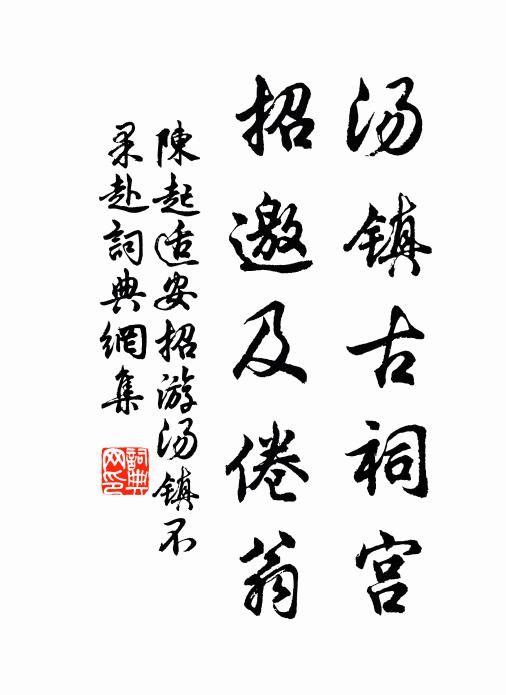 汤镇古祠宫
招邀及倦翁
陳起适安招游汤镇不
果赴詞典網集
詞典网印